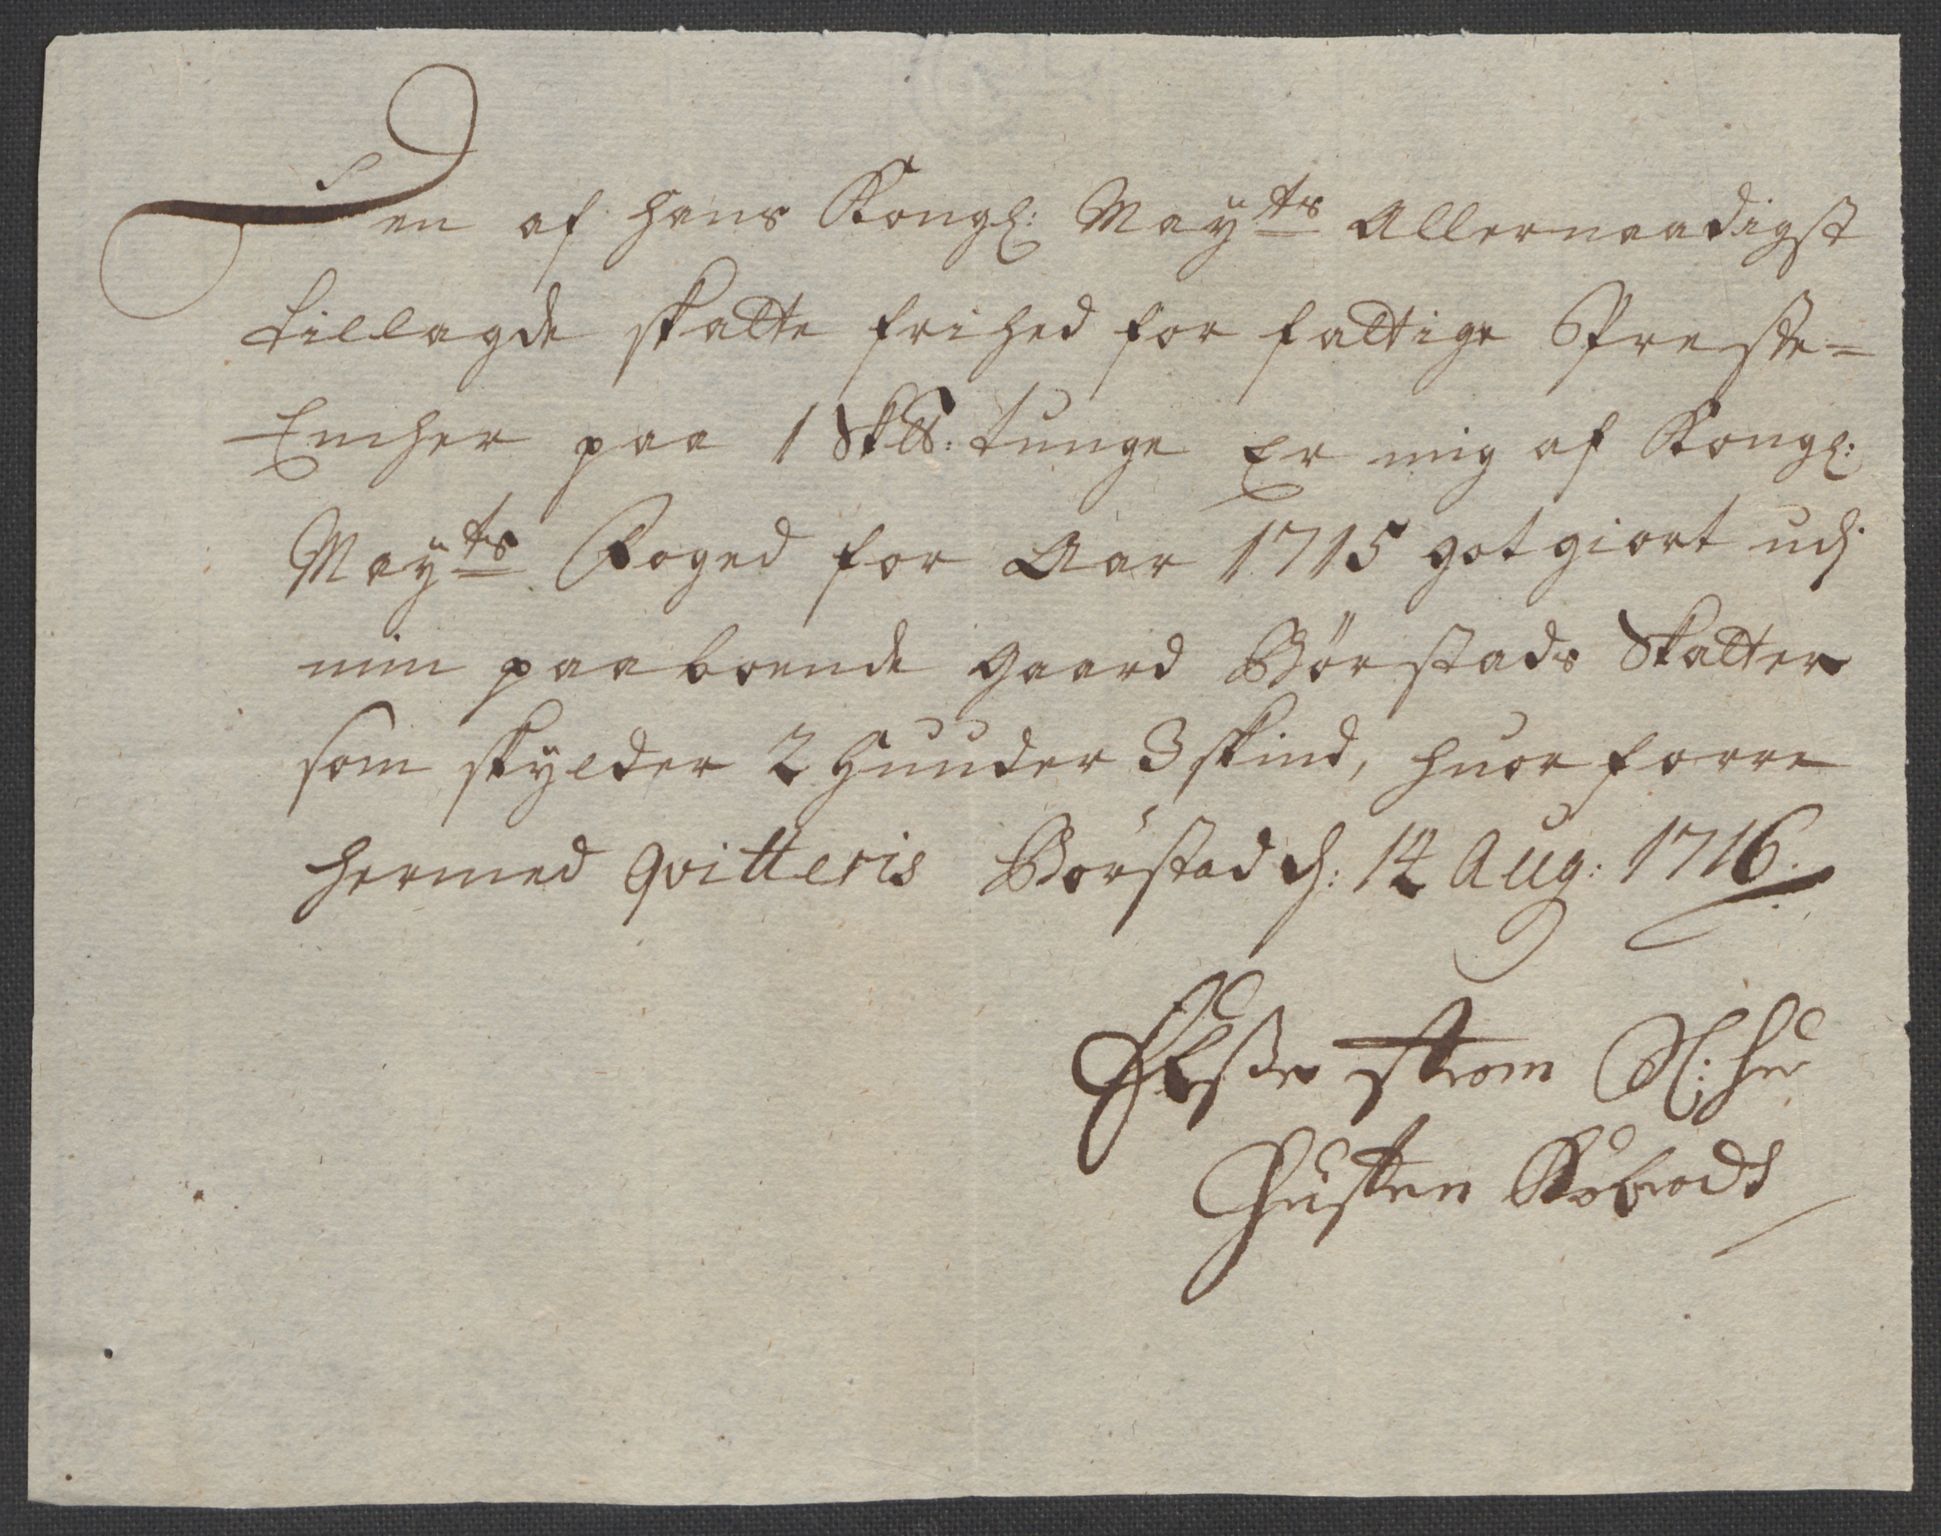 Den af hans Kongl: Mayts Allernaadigst
tillagde skatte frihed for fattige Preste-
Encher paa 1 Skll: tunge Er mig af Kongl:
Mayts Foged for Aar 1715 got giort udj
min paaboende gaard Börstads Skatter
som skylder 2 Huuder 3 skind, huorforre
hermed qvitteris Börstad d: 14 Aug: 1716.
strøm Sl: her